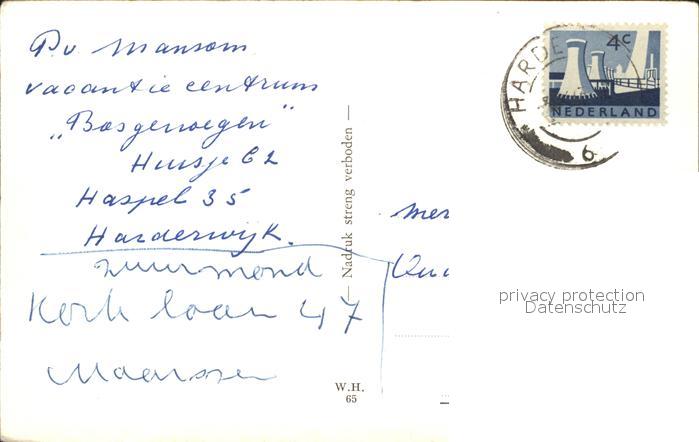 P. v Mansom
vacantie centrum
„Bosgenoegen"
Huisje 62
Haspel 35
Harderwijk.
Zuurmond
Kerk laan 47
Maarssen
— Nadruk streng verboden —
W.H.
65
4c
NEDERLAND
HARDE
6
Mer
privacy protection
Datenschutz